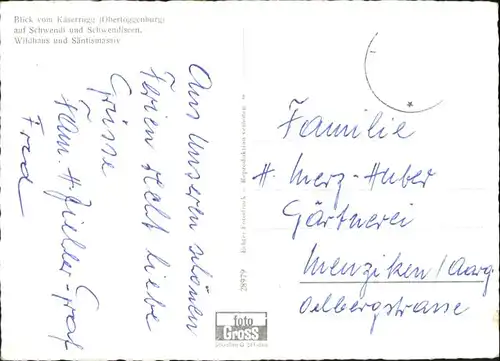 Blick vom Käserrugg (Obertoggenburg)
auf Schwendi und Schwendiseen,
Wildhaus und Säntismassiv
Aus unseren schönen
Ferien recht liebe
Grüsse
Fam. H. Fiedler-Graf
Fred
28979
Reproduktion verboten
foto
GROSS
Familie
H. Merz-Huber
Gärtnerei
Menziken/Aarg
Oelbergstrasse